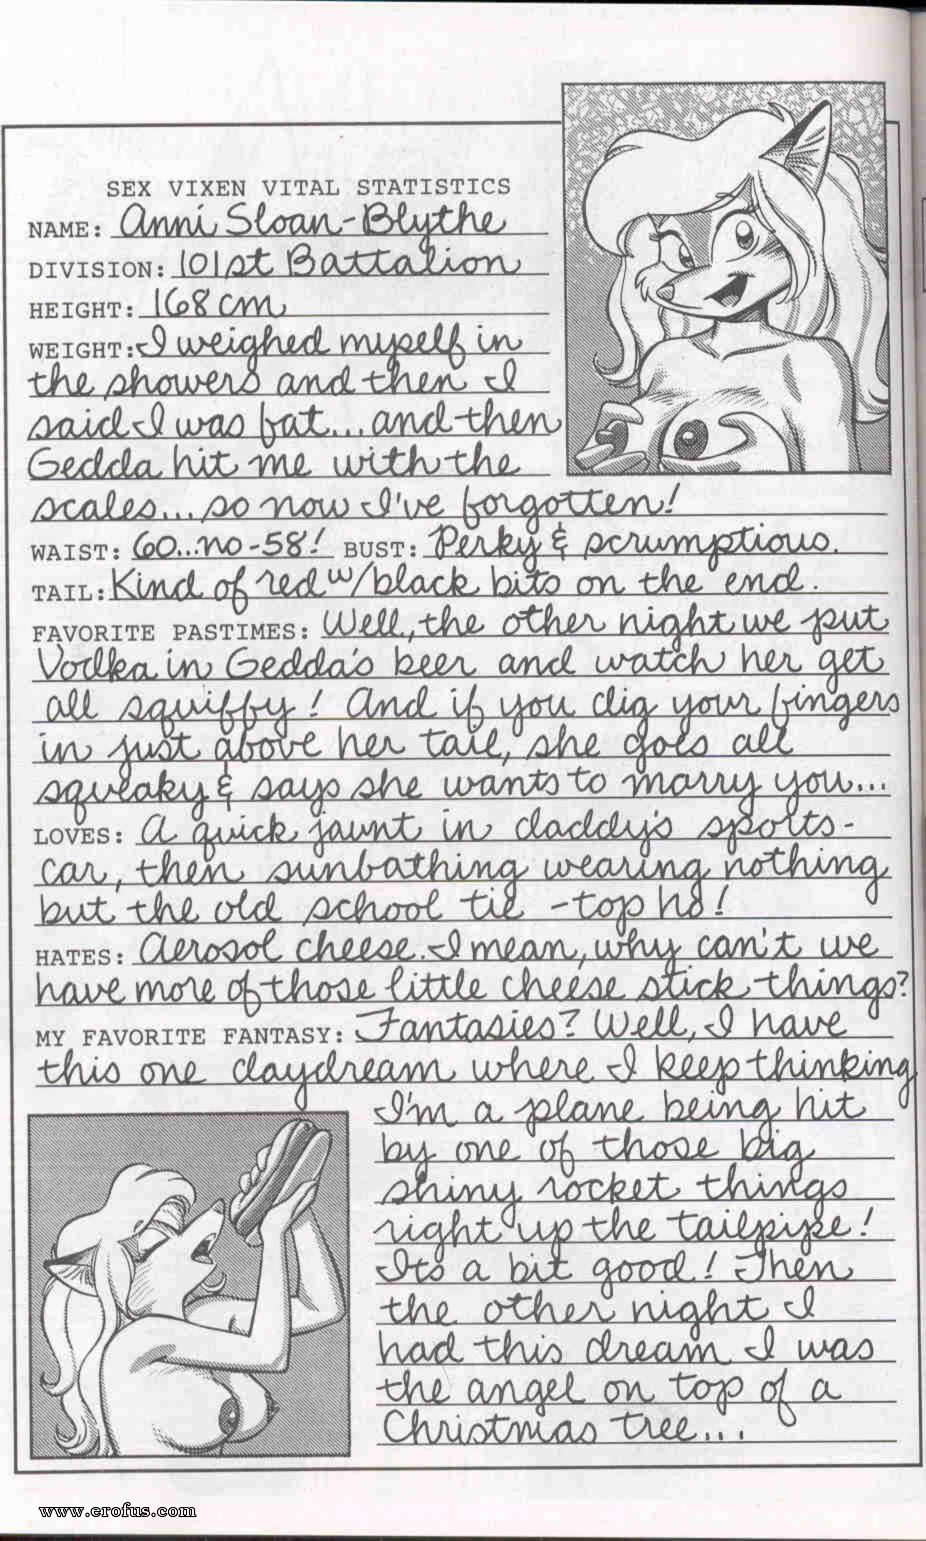 SEX VIXEN VITAL STATISTICS
NAME: Anni Sloan-Blythe
DIVISION: 101st Battalion
HEIGHT: 168 cm
WEIGHT: I weighed myself in
the showers and then I
said I was fat... and then
Gedda hit me with the
scales... so now I've forgotten!
WAIST: 60...no-58! BUST: Perky & scrumptious.
TAIL: Kind of red w/black bits on the end.
FAVORITE PASTIMES: Well, the other night we put
Vodka in Gedda's beer and watch her get
all squiffy! And if you dig your fingers
in just above her tail, she goes all
squeaky & says she wants to marry you...
LOVES: A quick jaunt in daddy's sports-
car, then sunbathing wearing nothing
but the old school tie - top ho!
HATES: Aerosol cheese. I mean, why can't we
have more of those little cheese stick things?
MY FAVORITE FANTASY: Fantasies? Well, I have
this one daydream where I keep thinking
I'm a plane being hit
by one of those big
shiny rocket things
right up the tailpipe!
Its a bit good! Then
the other night I
had this dream I was
the angel on top of a
Christmas tree...
www.erofus.com